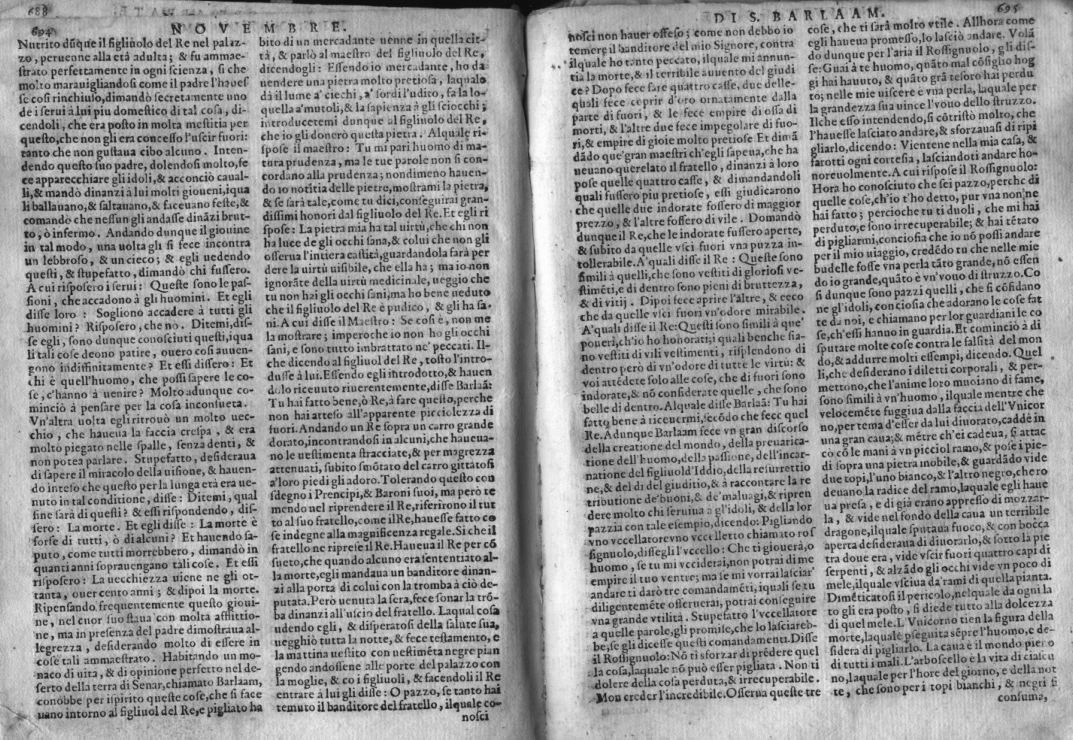 688
694
NOVEMBRE.
Nutrito dũque il figliuolo del Re nel palaz-
zo, peruenne alla età adulta; & fu ammae-
strato perfettamente in ogni scienza, si che
molto marauigliandosi come il padre l'hauef
se cosi rinchiuso, dimandò secretamente uno
de i serui à lui piu domestico di tal cosa, di-
cendoli, che era posto in molta mestitia per
questo, che non gli era concesso l'uscir fuori:
tanto che non gustaua cibo alcuno. Inten-
dendo questo suo padre, dolendosi molto, fe
ce apparecchiare gli idoli, & acconciò caual-
li, & mandò dinanzi à lui molti gioueni, iqua
li ballauano, & saltauano, & faceuano feste, &
comando che nessun gli andasse dinãzi brut-
to, ò infermo. Andando dunque il giouine
in tal modo, una uolta gli si fece incontra
un lebbroso, & un cieco; & egli uedendo
questi, & stupefatto, dimandò chi fussero.
A cui risposero i serui: Queste sono le pas-
sioni, che accadono à gli huomini. Et egli
disse loro: Sogliono accadere à tutti gli
huomini? Risposero, che no. Ditemi, dis-
se egli, sono dunque conosciuti questi, iqua
li tali cose deono patire, ouero cosi auuen-
gono indiffinitamente? Et essi dissero: Et
chi è quell'huomo, che possi sapere le co-
se, c'hanno à uenire? Molto adunque co-
minciò à pensare per la cosa inconsueta.
Vn'altra uolta egli ritrouò un molto uec-
chio, che haueua la faccia crespa, & era
molto piegato nelle spalle, senza denti, &
non potea parlare. Stupefatto, desideraua
di sapere il miracolo della uisione, & hauen-
do inteso che questo per la lunga età era ue-
nuto in tal conditione, disse: Ditemi, qual
fine sarà di questi? & essi rispondendo, dis-
sero: La morte. Et egli disse: La morte è
forse di tutti, ò d'alcuni? Et hauendo sa-
puto, come tutti morrebbero, dimandò in
quanti anni soprauengano tali cose. Et essi
risposero: La uecchiezza uiene ne gli ot-
tanta, ouer cento anni; & dipoi la morte.
Ripensando frequentemente questo gioui-
ne, nel cuor suo staua con molta afflittio-
ne, ma in presenza del padre dimostraua al-
legrezza, desiderando molto di essere in
cose tali ammaestrato. Habitando un mo-
naco di uita, & di opinione perfetto nel de-
serto della terra di Senar, chiamato Barlaam,
conobbe per ispirito queste cose, che si face
uano intorno al figliuol del Re, e pigliato ha
bito di un mercadante uenne in quella cit-
tà, & parlò al maestro del figliuolo del Re,
dicendogli: Essendo io mercadante, ho da
uendere una pietra molto pretiosa, laquale
dà il lume a' ciechi, a' sordi l'udito, fa la lo-
quella a' mutoli, & la sapienza à gli sciocchi;
introducetemi dunque al figliuolo del Re,
che io gli donerò questa pietra. Alquale ri-
spose il maestro: Tu mi pari huomo di ma-
tura prudenza, ma le tue parole non si con-
cordano alla prudenza; nondimeno hauen-
do io notitia delle pietre, mostrami la pietra,
& se sarà tale, come tu dici, conseguirai gran-
dissimi honori dal figliuolo del Re. Et egli ri
spose: La pietra mia ha tal uirtù, che chi non
ha luce de gli occhi sana, & colui che non gli
osserua l'intiera castità, guardandola farà per
dere la uirtù uisibile, che ella ha; ma io non
ignorãte della uirtù medicinale, ueggio che
tu non hai gli occhi sani, ma ho bene ueduto
che il figliuolo del Re è pudico, & gli ha sa-
ni. A cui disse il Maestro: Se cosi è, non me
la mostrare; imperoche io non ho gli occhi
sani, e sono tutto imbrattato ne' peccati. Il-
che dicendo al figliuol del Re, tosto l'intro-
dusse à lui. Essendo egli introdotto, & hauen
dolo riceuuto riuerentemente, disse Barlaã:
Tu hai fatto bene, ò Re, à fare questo, perche
non hai atteso all'apparente picciolezza di
fuori. Andando un Re sopra un carro grande
dorato, incontrandosi in alcuni, che haueua-
no le uestimenta stracciate, & per magrezza
attenuati, subito smõtato del carro gittatosi
a' loro piedi gli adoro. Tolerando questo con
sdegno i Prencipi, & Baroni suoi, ma però te
mendo nel riprendere il Re, riferirono il tut
to al suo fratello, come il Re, hauesse fatto co
se indegne alla magnificenza regale. Si che il
fratello ne riprese il Re. Haueua il Re per cõ
sueto, che quando alcuno era sententiato al-
la morte, egli mandaua un banditore dinan-
zi alla porta di colui con la tromba à ciò de-
putata. Però uenuta la sera, fece sonar la trõ-
ba dinanzi all'uscio del fratello. Laqual cosa
udendo egli, & disperatosi della salute sua,
uegghiò tutta la notte, & fece testamento, e
la mattina uestito con uestimẽta negre pian
gendo andossene alle porte del palazzo con
la moglie, & co i figliuoli, & facendoli il Re
entrare à lui gli disse: O pazzo, se tanto hai
temuto il banditore del fratello, ilquale co-
nosci
695
DI S. BARLAAM.
nosci non hauer offeso; come non debbo io
temere il banditore del mio Signore, contra
ilquale ho tanto peccato, ilquale mi annun-
tia la morte, & il terribile auuento del giudi
ce? Dopo fece fare quattro casse, due delle-
quali fece coprir d'oro ornatamente dalla
parte di fuori, & le fece empire di ossa di
morti, & l'altre due fece impegolare di fuo-
ri, & empire di gioie molto pretiose. Et dimã
dãdo que' gran maestri ch'egli sapeua, che ha
ueuano querelato il fratello, dinanzi à loro
pose quelle quattro casse, & dimandandoli
quali fussero piu pretiose, essi giudicarono
che quelle due indorate fossero di maggior
prezzo, & l'altre fossero di vile. Domandò
dunque il Re, che le indorate fussero aperte,
& subito da quelle vsci fuori vna puzza in-
tollerabile. A' quali disse il Re: Queste sono
simili à quelli, che sono vestiti di gloriosi ve-
stimẽti, e di dentro sono pieni di bruttezza,
& di vitij. Dipoi fece aprire l'altre, & ecco
che da quelle vsci fuori vn'odore mirabile.
A' quali disse il Re: Questi sono simili à que'
poueri, ch'io ho honorati; i quali benche sia-
no vestiti di vili vestimenti, risplendono di
dentro però di vn'odore di tutte le virtù: &
voi attẽdete solo alle cose, che di fuori sono
indorate, & nõ considerate quelle, che sono
belle di dentro. Alquale disse Barlaã: Tu hai
fatto bene à riceuermi, secõdo che fece quel
Re. Adunque Barlaam fece vn gran discorso
della creatione del mondo, della preuarica-
tione dell'huomo, della passione, dell'incar-
natione del figliuol d'Iddio, della resurrettio
ne, & del dì del giuditio, & à raccontare la re
tributione de' buoni, & de' maluagi, & ripren
dere molto chi seruiua a gl'idoli, & della lor
pazzia con tale esempio, dicendo: Pigliando
vno vccellatore vno vccelletto chiamato ros
signuolo, dissegli l'vccello: Che ti giouerà, o
huomo, se tu mi vcciderai, non potrai di me
empire il tuo ventre; ma se mi vorrai lasciar'
andare ti darò tre comandamẽti, iquali se tu
diligentemẽte osseruerai, potrai conseguire
vna grande vtilità. Stupefatto l'vccellatore
a quelle parole, gli promise, che lo lasciareb-
be, se gli dicesse questi comandamenti. Disse
il Rossignuolo: Nõ ti sforzar di prẽdere quel
la cosa, laquale nõ può esser pigliata. Non ti
dolere della cosa perduta, & irrecuperabile.
Non creder l'incredibile. Osserua queste tre
cose, che ti sarà molto vtile. Allhora come
egli haueua promesso, lo lasciò andare. Volã
do dunque per l'aria il Rossignuolo, gli dis-
se: Guai à te huomo, quãto mal cõsiglio hog
gi hai hauuto, & quãto grã tesoro hai perdu
to; nelle mie uiscere è vna perla, laquale per
la grandezza sua uince l'vouo dello struzzo.
Ilche esso intendendo, si cõtristò molto, che
l'hauesse lasciato andare, & sforzauasi di ripi
gliarlo, dicendo: Vientene nella mia casa, &
farotti ogni cortesia, lasciandoti andare ho-
noreuolmente. A cui rispose il Rossignuolo:
Hora ho conosciuto che sei pazzo, perche di
quelle cose, ch'io t'ho detto, pur vna non ne
hai fatto; percioche tu ti duoli, che mi hai
perduto, e sono irrecuperabile; & hai tẽtato
di pigliarmi, conciosia che io nõ possi andare
per il mio uiaggio, credẽdo tu che nelle mie
budelle fosse vna perla tãto grande, nõ essen
do io grande, quãto è vn'vouo di struzzo. Co
si dunque sono pazzi quelli, che si cõfidano
ne gl'idoli, conciosia che adorano le cose fat
te da noi, e chiamano per lor guardiani le co
se, ch'essi hanno in guardia. Et cominciò à di
sputare molte cose contra le falsità del mon
do, & addurre molti essempi, dicendo. Quel
li, che desiderano i diletti corporali, & per-
mettono, che l'anime loro muoiano di fame,
sono simili à vn'huomo, ilquale mentre che
velocemẽte fuggiua dalla faccia dell'Vnicor
no, per tema d'esser da lui diuorato, caddè in
una gran caua; & mẽtre ch'ei cadeua, si attac
co cõ le mani à vn picciol ramo, & pose i pie-
di sopra una pietra mobile, & guardãdo vide
due topi, l'uno bianco, & l'altro negro, che ro
deuano la radice del ramo, laquale egli haue
ua presa, e di già erano appresso di mozzar-
la, & vide nel fondo della caua un terribile
dragone, ilquale sputaua fuoco, & con bocca
aperta desideraua di diuorarlo, & sotto la pie
tra doue era, vide vscir fuori quattro capi di
serpenti, & alzãdo gli occhi vide vn poco di
mele, ilquale vsciua da' rami di quella pianta.
Dimẽticatosi il pericolo, nelquale da ogni la
to gli era posto, si diede tutto alla dolcezza
di quel mele. L'Vnicorno tien la figura della
morte, laquale pseguita sẽpre l'huomo, e de-
sidera di pigliarlo. La caua è il mondo pieno
di tutti i mali. L'arboscello è la vita di ciascu
no, laquale per l'hore del giorno, e della not
te, che sono per i topi bianchi, & negri si
consuma,